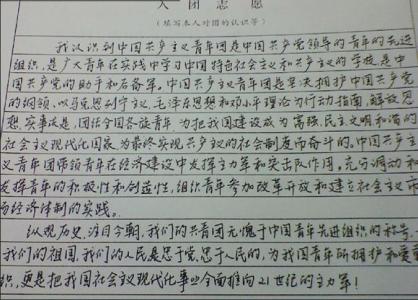 入团志愿
(填写本人对团的认识等)
我认识到中国共产主义青年团是中国共产党领导的青年的先进
组织,是广大青年在实践中学习中国特色社会主义和共产主义的学校,是中
国共产党的助手和后备军。中国共产主义青年团坚决拥护中国共产党
的纲领,以马克思列宁主义、毛泽东思想和邓小平理论为行动指南,解放思
想,实事求是,团结全国各族青年,为把我国建设成为富强民主文明和谐的
社会主义现代化国家,为最终实现共产主义的社会制度而奋斗的。中国共产主
义青年团带领青年在经济建设中发挥主力军和突击队作用。充分调动和
发挥青年的积极性和创造性,组织青年参加改革开放和建立社会主义市
场经济体制的实践。
纵观历史,注目今朝,我们的共青团无愧于中国青年先进组织的称号。
我们的祖国,我们的人民是忠于党,忠于人民的,为我国青年所拥护和爱戴
织,更是把我国社会主义现代化事业全面推向21世纪的主力军!